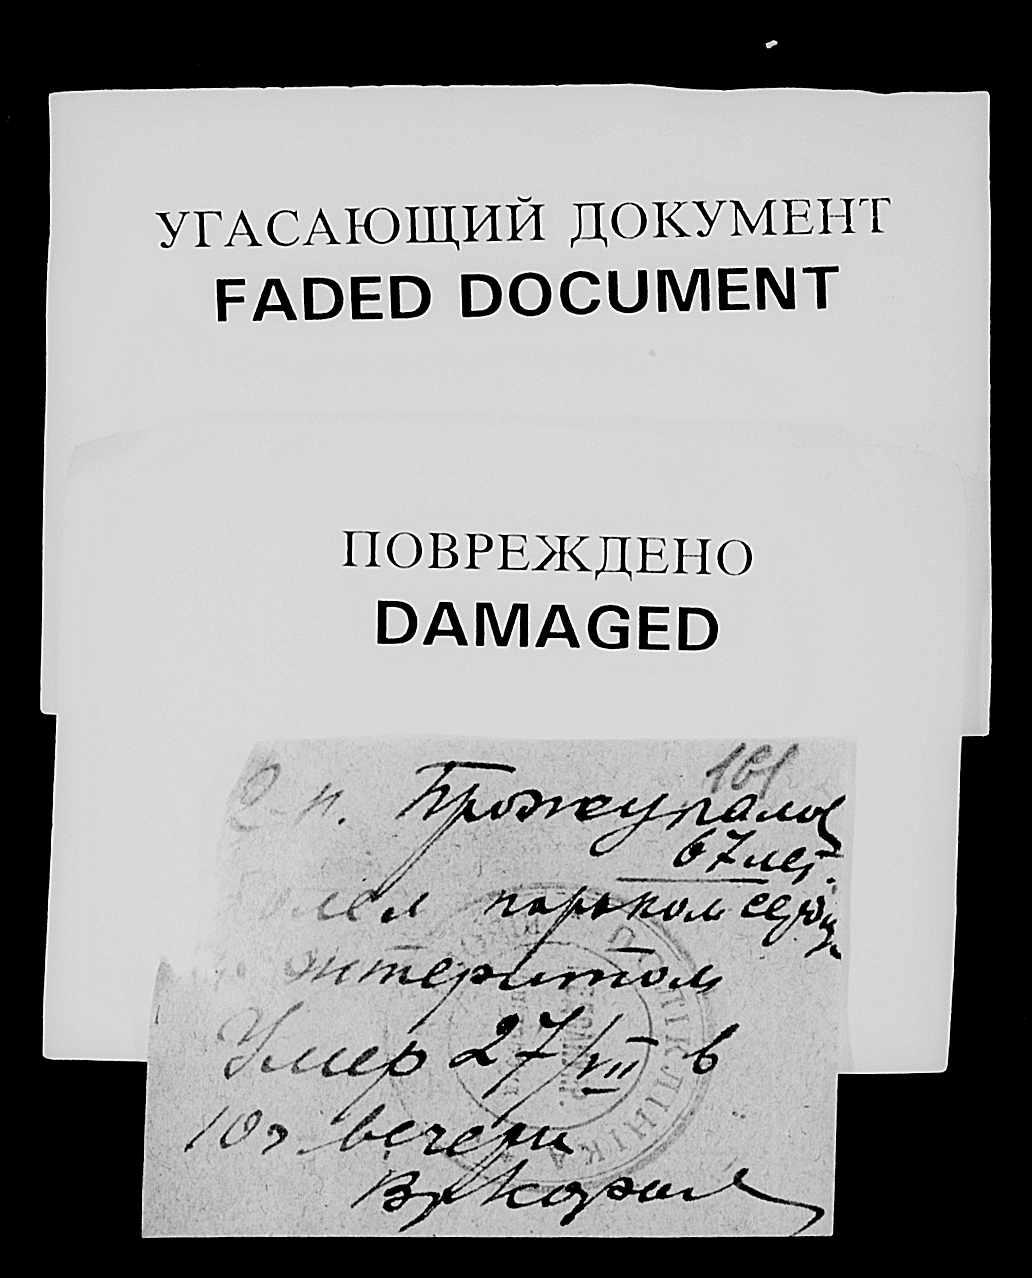 УГАСАЮЩИЙ ДОКУМЕНТ
FADED DOCUMENT
ПОВРЕЖДЕНО
DAMAGED
161
С-н. Прожугалов
67 лет.
болел пороком сердц.
энтеритом
Умер 27/VII в
10 ч вечера
Вр
ПОЛIКЛIНIКА